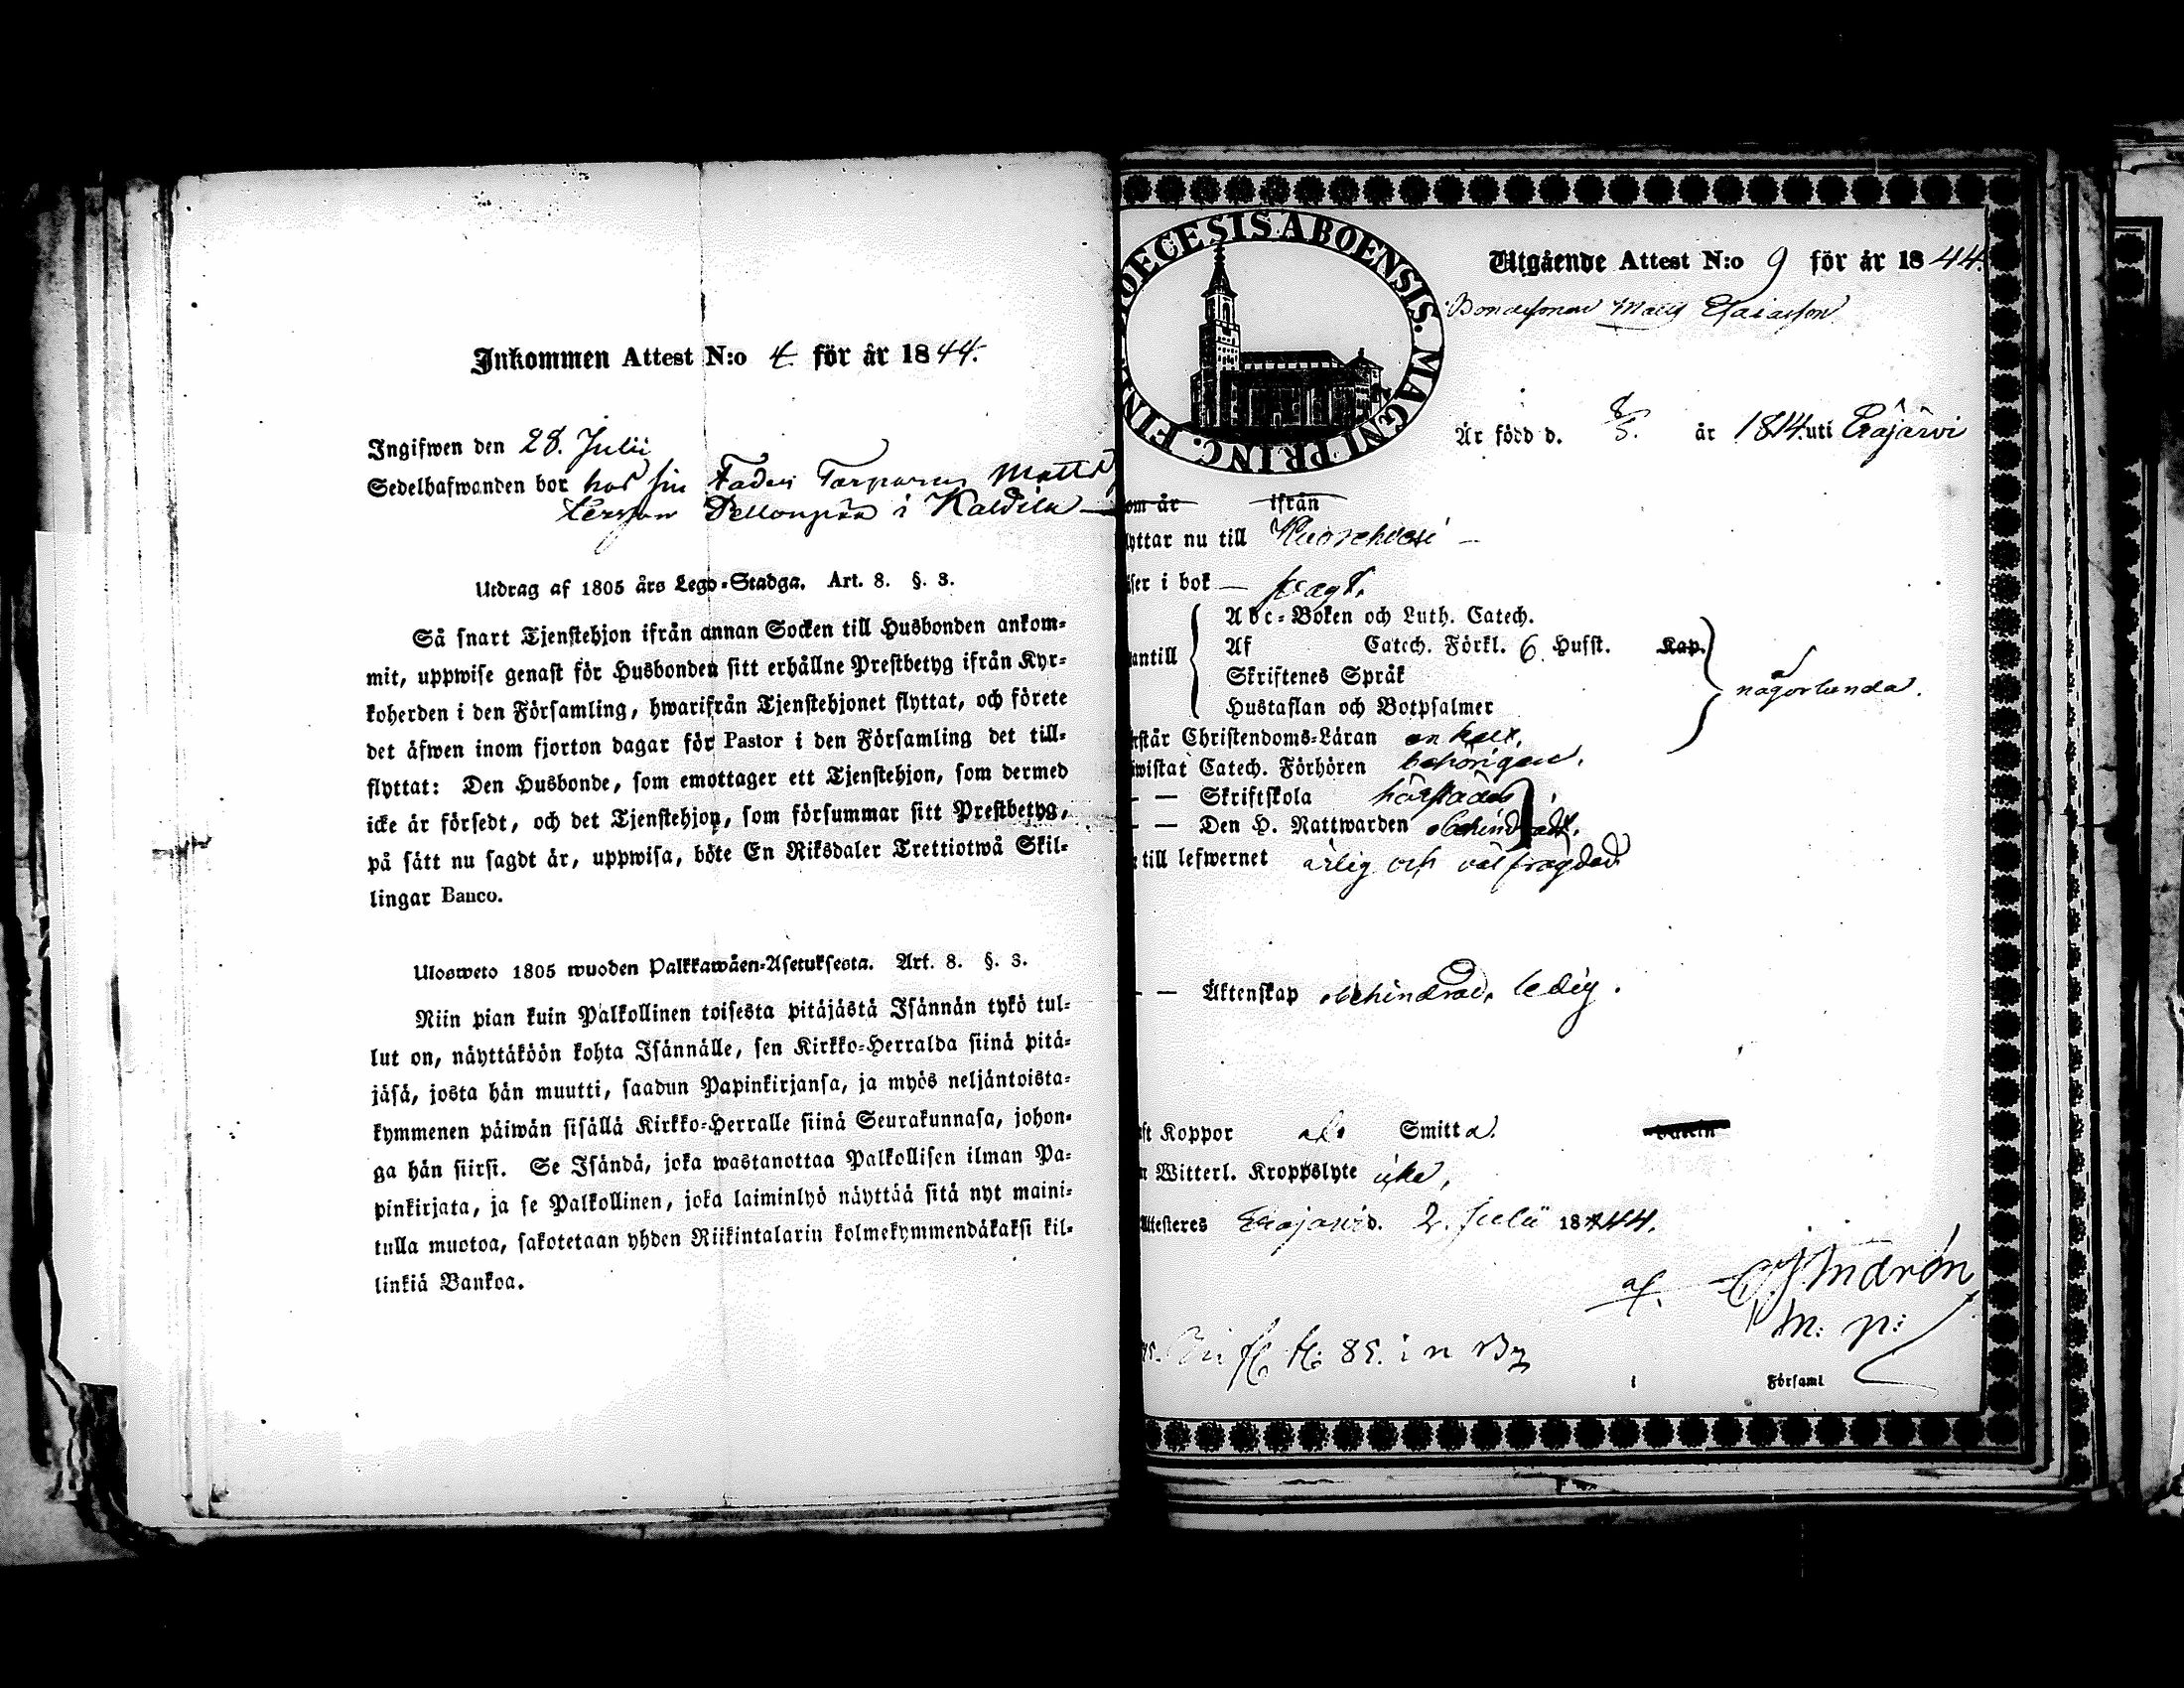 Inkommen Attest N:o 4 för år 1844.
Ingifwen den 28. Julii
Sedelhafwanden bor hos sin Fader Torparen Matts
i Kaldila
Utdrag af 1805 års Lego-Stadga. Art. 8. §. 3.
Så snart Tjenstehjon ifrån annan Socken till Husbonden ankom-
mit, uppwise genast för Husbonden sitt erhållne Prestbetyg ifrån Kyr-
koherden i den Församling, hwarifrån Tjenstehjonet flyttat, och förete
det äfwen inom fjorton dagar för Pastor i den Församling det till-
flyttat: Den Husbonde, som emottager ett Tjenstehjon, som dermed
icke är försedt, och det Tjenstehjon, som försummar sitt Prestbetyg,
på sätt nu sagdt är, uppwisa, böte En Riksdaler Trettiotwå Skil-
lingar Banco.
Ulosweto 1805 wuoden Palkkawäen-Asetuksesta. Art. 8. §. 3.
Niin pian kuin Palkollinen toisesta pitäjästä Isännän tykö tul-
lut on, näyttäköön kohta Isännälle, sen Kirkko-Herralda siinä pitä-
jäsä, josta hän muutti, saadun Papinkirjansa, ja myös neljäntoista-
kymmenen päiwän sisällä Kirkko-Herralle siinä Seurakunnasa, johon-
ga hän siirsi. Se Isändä, joka wastanottaa Palkollisen ilman Pa-
pinkirjata, ja se Palkollinen, joka laiminlyö näyttää sitä nyt maini-
tulla muotoa, sakotetaan yhden Riikintalarin kolmekymmendäkaksi kil-
linkiä Bankoa.
DIOECESIS ABOENSIS. MAGNI PRINC. FIN
Utgående Attest N:o 9 för år 1844.
Bondesonen Matts Esaiasson
Är född d. 8/5. år 1814. uti Eräjärvi
om är ifrån
lyttar nu till Kuorehvesi
äser i bok – svagt.
Abc-Boken och Luth. Catech.
antill Af Catech. Förkl. 6. Husst. Kap.
Skriftenes Språk
Hustaflan och Botpsalmer
någorlunda.
rstår Christendoms-Läran enkelt.
iwistat Catech. Förhören behörigen.
– – Skriftskola härstädes
– – Den H. Nattwarden obehindradt.
till lefwernet ärlig och välfrägdad
– – Äktenskap obehindrad, ledig.
st Koppor af Smitta.
n Witterl. Kroppslyte icke,
Attesteres Eräjärvi d. 2. Julii 1844.
af.
m: p:
85. i n By
i Församl